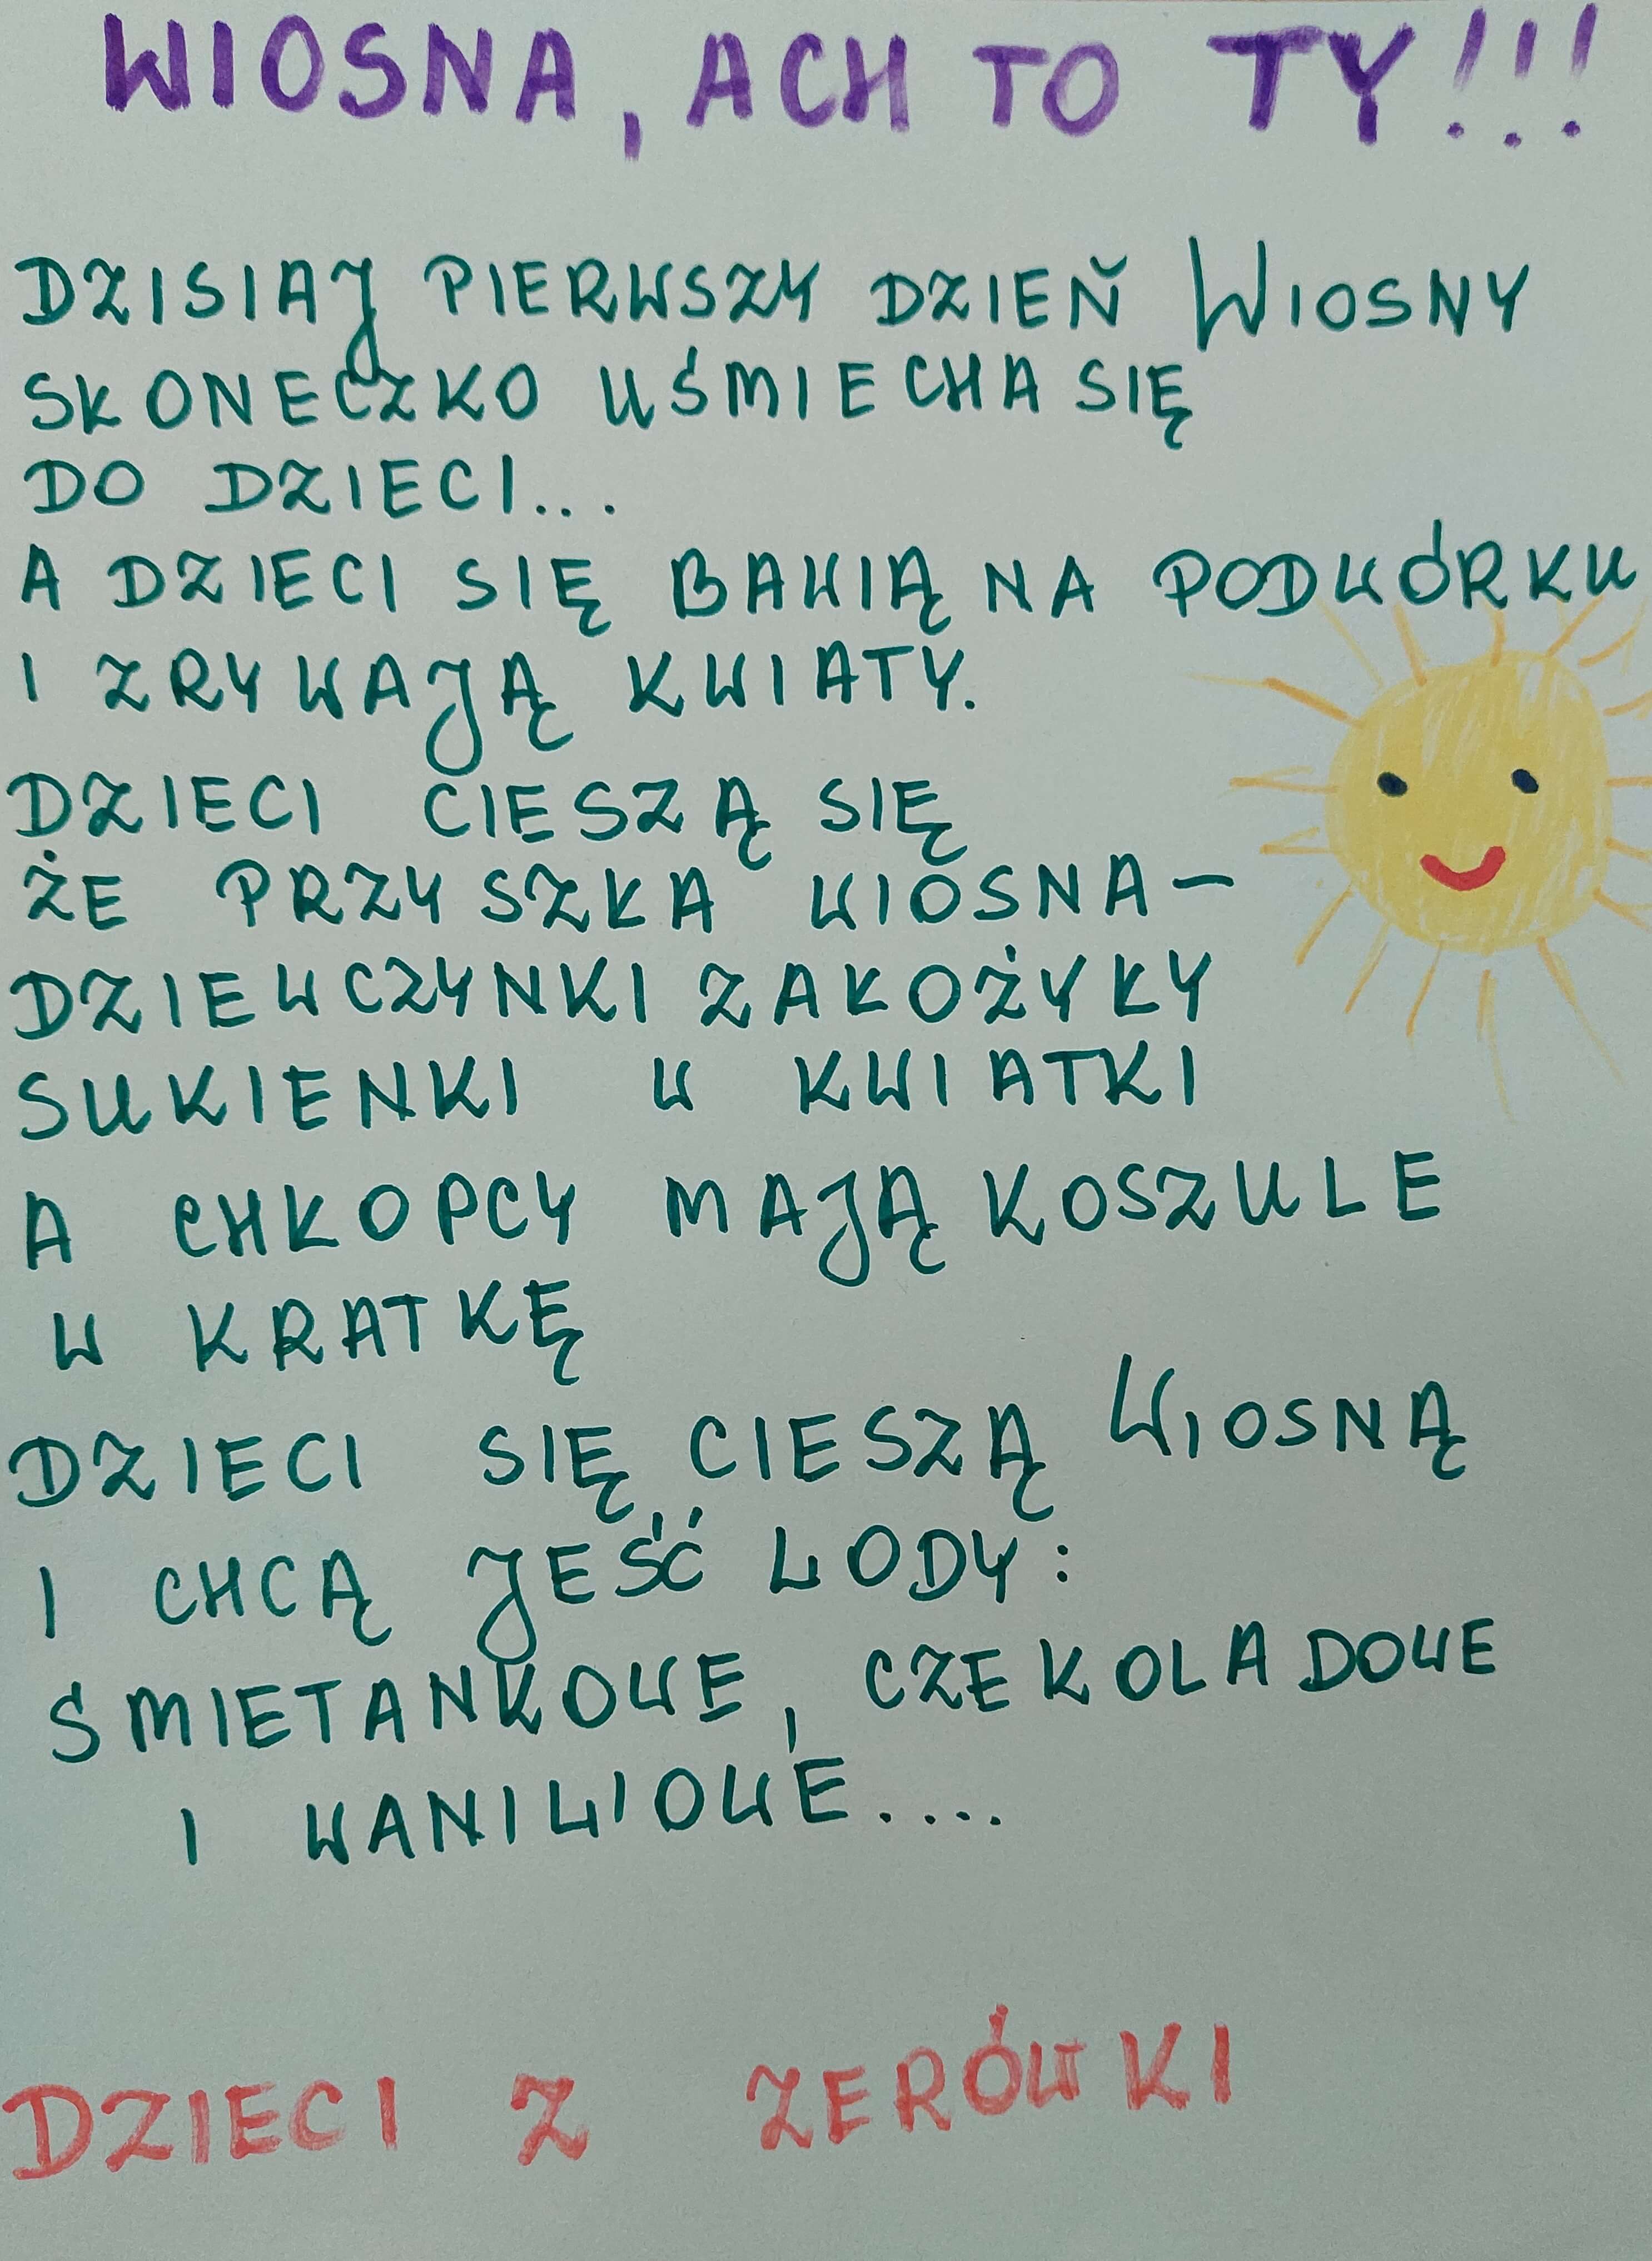 WIOSNA, ACH TO TY!!!
DZISIAJ PIERWSZY DZIEŃ WIOSNY
SŁONECZKO UŚMIECHA SIĘ
DO DZIECI...
A DZIECI SIĘ BAWIĄ NA PODWÓRKU
I ZRYWAJĄ KWIATY.
DZIECI CIESZĄ SIĘ
ŻE PRZYSZŁA WIOSNA-
DZIEWCZYNKI ZAŁOŻYŁY
SUKIENKI W KWIATKI
A CHŁOPCY MAJĄ KOSZULE
W KRATKĘ
DZIECI SIĘ CIESZĄ WIOSNĄ
I CHCĄ JEŚĆ LODY:
SMIETANKOWE, CZEKOLADOWE
I WANILIOWE....
DZIECI Z ZERÓWKI